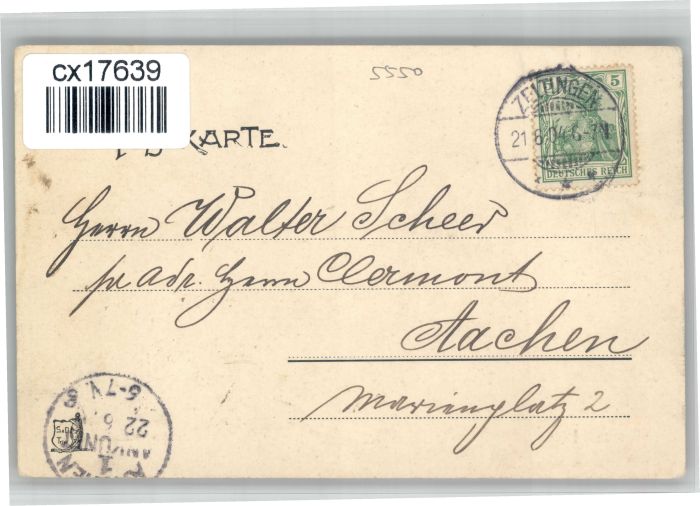 cx17639
5550
KARTE.
ZELTINGEN
21.6.04. 6-7N.
5
DEUTSCHES REICH
Herrn Walter Scheer
pr. adr. Herrn Clermont
Aachen
Marienplatz 2
5-7V.
22.6